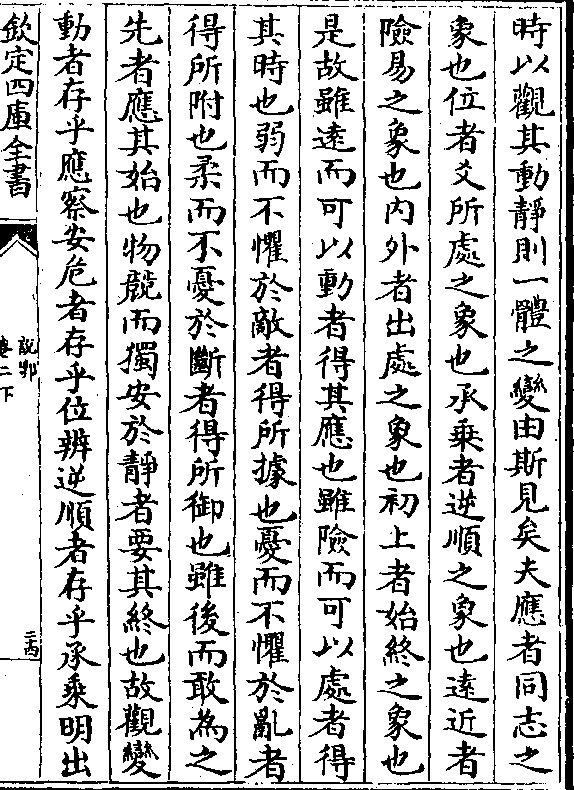 時以觀其動靜則一體之變由斯見矣夫應者同志之
象也位者爻所處之象也承乗者逆順之象也遠近者
險易之象也内外者出處之象也初上者始終之象也
是故雖遠而可以動者得其應也雖險而可以處者得
其時也弱而不懼於敵者得所據也憂而不懼於亂者
得所附也柔而不憂於斷者得所御也雖後而敢為之
先者應其始也物競而獨安於靜者要其終也故觀變
動者存乎應察安危者存乎位辨逆順者存乎承乗明出
欽定四庫全書
說郛
卷二下
二十四